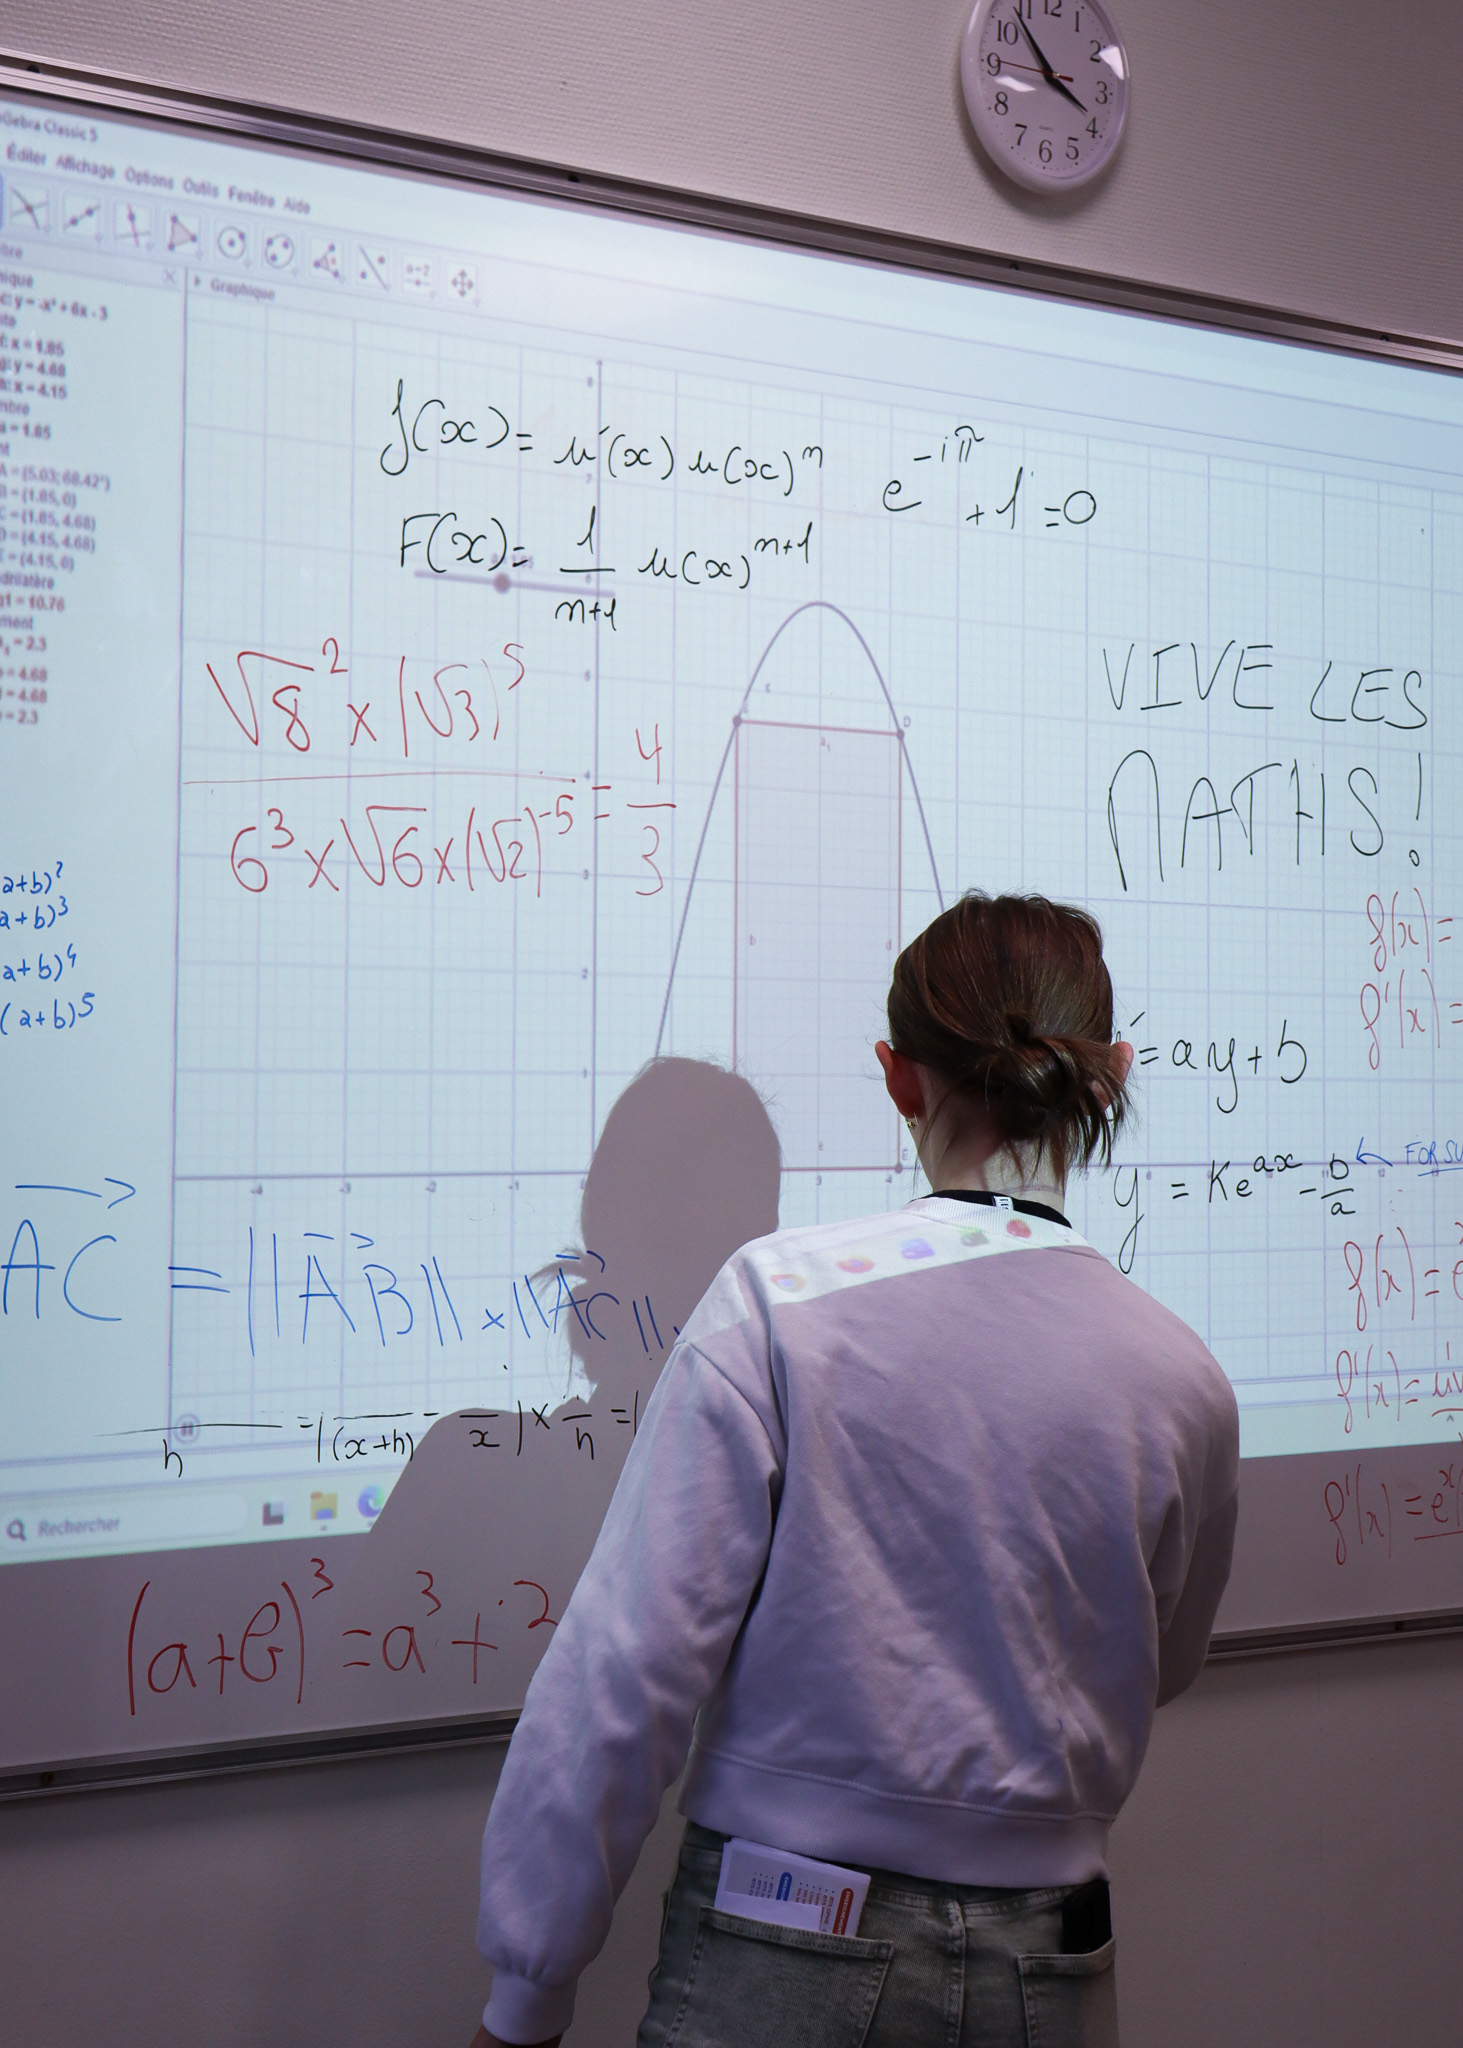 11 12 1
10 2
9 3
8 4
7 6 5
GeoGebra Classic 5
Éditer Affichage Options Outils Fenêtre Aide
a=2
Graphique
y = -x² + 6x - 3
x = 1.85
y = 4.68
x = 4.15
a = 1.85
A = (5.03; 68.42°)
B = (1.85, 0)
C = (1.85, 4.68)
D = (4.15, 4.68)
E = (4.15, 0)
q1 = 10.76
= 2.3
= 4.68
= 4.68
= 2.3
f(x) = u'(x) u(x)ⁿ
e^(-iπ) + 1 = 0
F(x) = 1/(n+1) u(x)ⁿ⁺¹
(√8² × (√3)⁵)/(6³ × √6 × (√2)⁻⁵) = 4/3
VIVE LES
MATHS!
a+b)²
a+b)³
a+b)⁴
(a+b)⁵
f(x) =
f'(x) =
' = ay + b
y = Ke^(ax) - b/a
f(x) = e
f'(x) =
f'(x) = eˣ
AC = ||AB|| × ||AC||
h = ( (x+h) - x ) × h =
Rechercher
(a+b)³ = a³ + 2